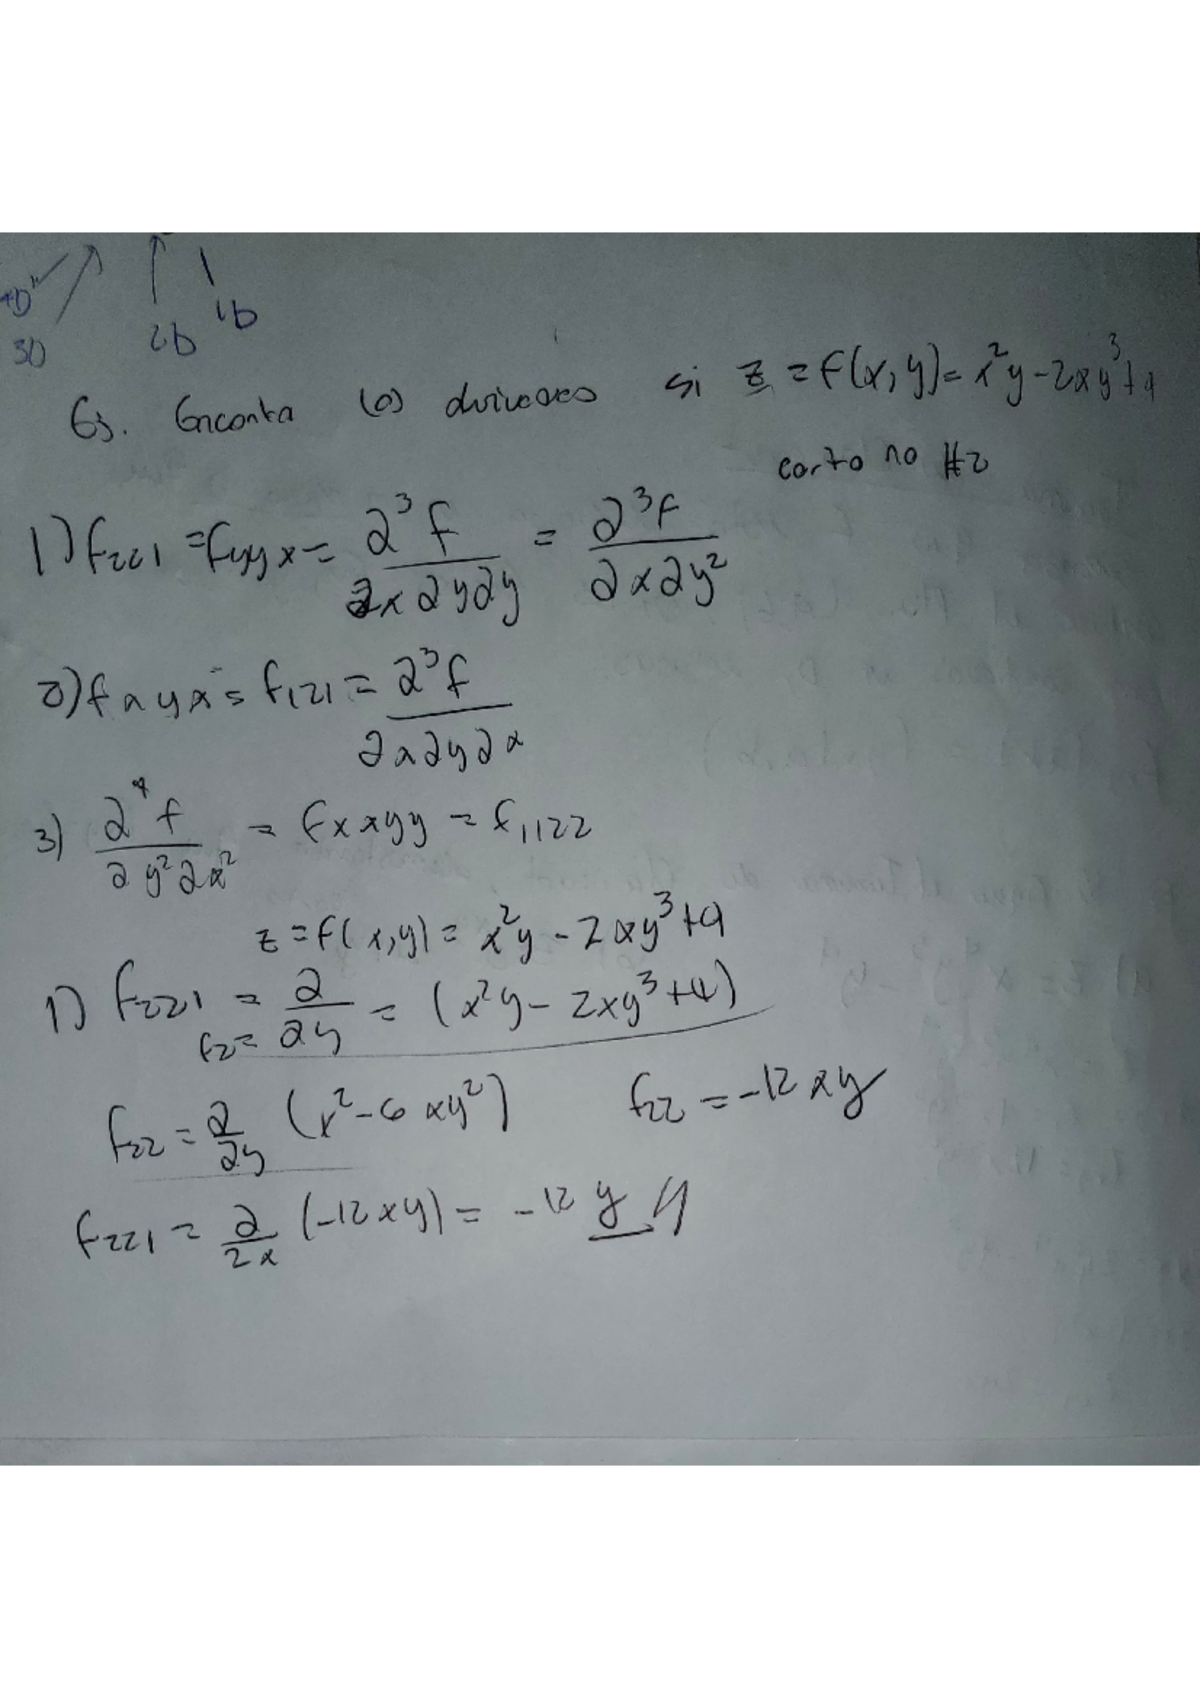 3D
2b
1b
Ej. Encontra las si z = f(x, y) = x²y - 2xy³ + 4
corto no #2
1) f221 = fyyx = ∂³f/∂x∂y∂y = ∂³f/∂x∂y²
2) fxyx = f121 = ∂³f/∂x∂y∂x
3) ∂⁴f/∂y²∂x² = fxxyy = f1122
z = f(x,y) = x²y - 2xy³ + 4
1) f221 = ∂/∂y = (x²y - 2xy³ + 4)
f2 =
f22 = ∂/∂y (x² - 6xy²) f22 = -12xy
f221 = ∂/∂x (-12xy) = -12y